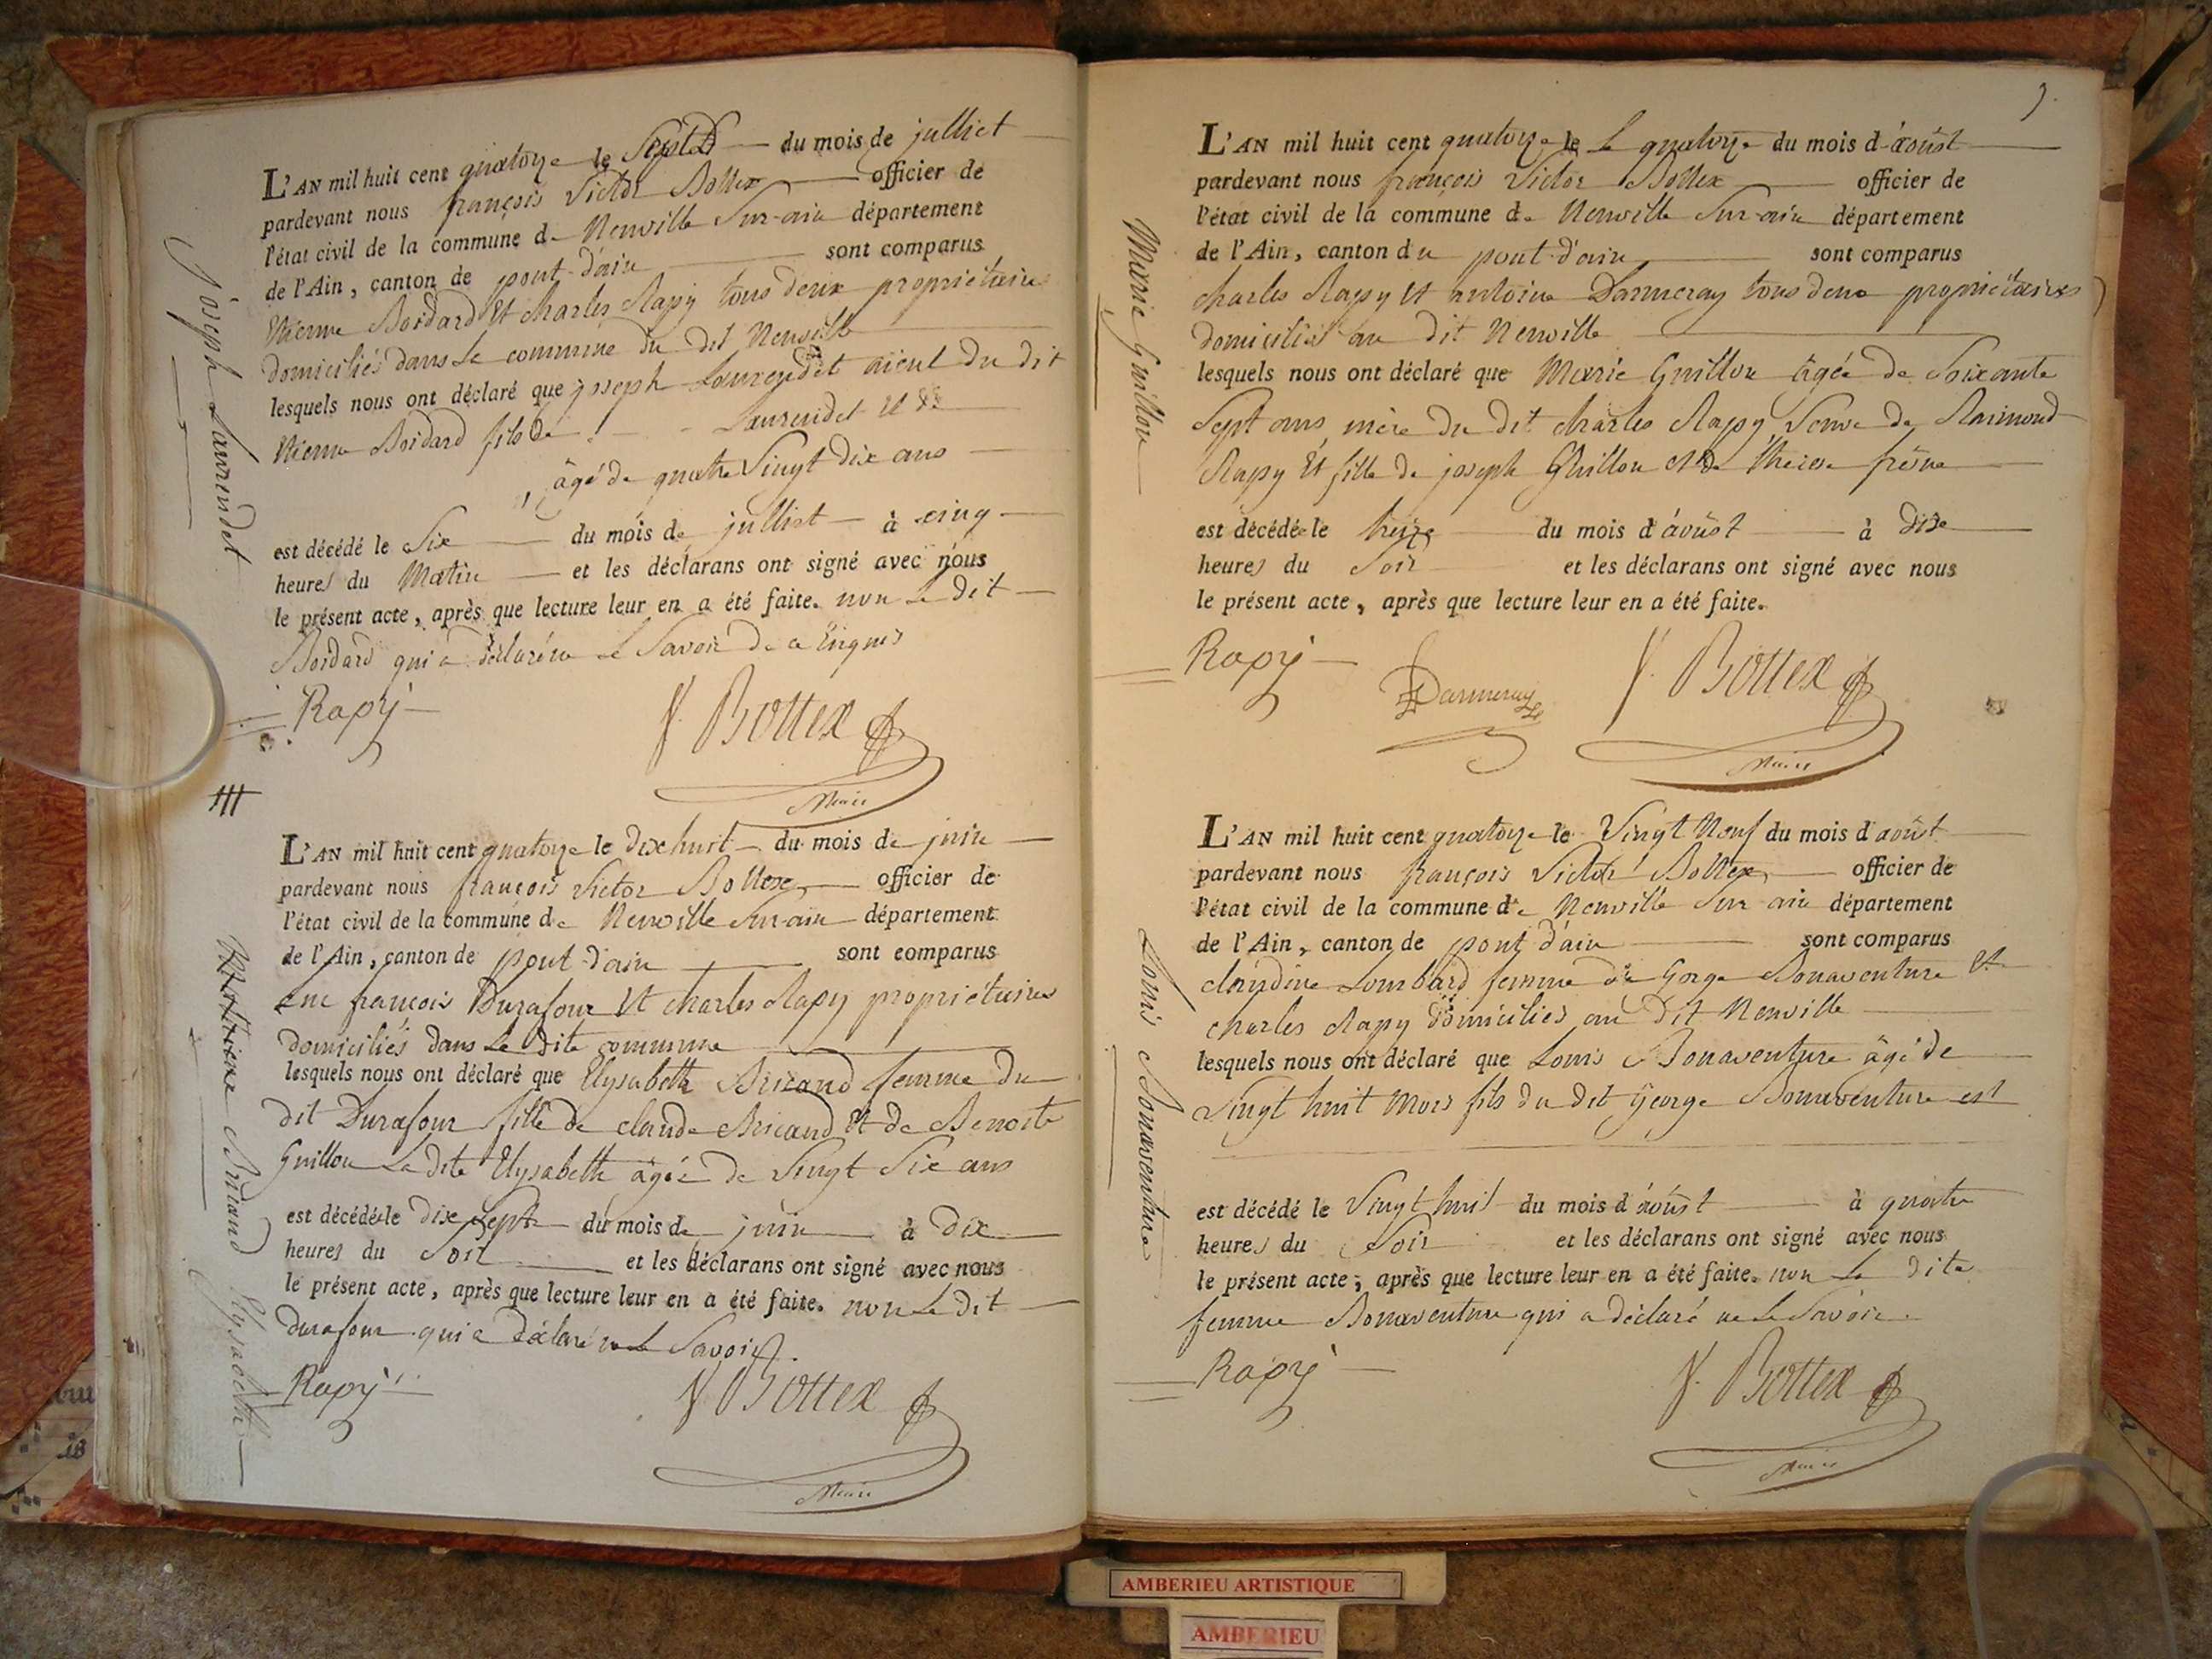 Joseph Laurendet
L'AN mil huit cent quatorze le Sept du mois de julliet
pardevant nous françois Victor Bottex officier de
l'état civil de la commune de Neuville Sur-ain département
de l'Ain, canton de pont-d'ain sont comparus
Etienne Boidard et charles Rapy tous deux propriétaires
domiciliés dans la commune du dit Neuville
lesquels nous ont déclaré que joseph Laurendet aieul du dit
Etienne Boidard fils de Laurendet et de
, âgé de quatre Vingt dix ans
est décédé le Six du mois de julliet à cinq
heures du Matin et les déclarans ont signé avec nous
le présent acte, après que lecture leur en a été faite. non le dit
Boidard qui a déclaré ne le Savoir de ce Enquis
Rapy
V. Bottex
Maire
III
Briand Elysabeth
L'AN mil huit cent quatorze le dixhuit du mois de juin
pardevant nous françois Victor Bottex officier de
l'état civil de la commune de Neuville Sur-ain département
de l'Ain, canton de pont-d'ain sont comparus
Luc françois Durafour et charles Rapy propriétaires
domiciliés dans la dite commune
lesquels nous ont déclaré que Elysabeth Bricand femme du
dit Durafour fille de claude Bricand et de Benoite
Guillon la dite Elysabeth agée de Vingt Six ans
est décédée le dix sept du mois de juin à dix
heures du Soir et les déclarans ont signé avec nous
le présent acte, après que lecture leur en a été faite. non le dit
durafour qui a déclaré ne le Savoir
Rapy
V. Bottex
Maire
Marie Guillon
L'AN mil huit cent quatorze le le quatorze du mois d'aoûst
pardevant nous françois Victor Bottex officier de
l'état civil de la commune de Neuville Sur-ain département
de l'Ain, canton du pont-d'ain sont comparus
charles Rapy et antoine Darmeray tous deux propriétaires
domiciliés au dit Neuville
lesquels nous ont déclaré que Marie Guillon âgée de Soixante
Sept ans, mère du dit charles Rapy, Veuve de Raimond
Rapy Et fille de joseph Guillon et de therese frêne
est décédée le treize du mois d'aoûst à dix
heures du Soir et les déclarans ont signé avec nous
le présent acte, après que lecture leur en a été faite.
Rapy
Darmeray
V. Bottex
Maire
Louis Bonaventure
L'AN mil huit cent quatorze le Vingt Neuf du mois d'aoûst
pardevant nous françois Victor Bottex officier de
l'état civil de la commune de Neuville Sur ain département
de l'Ain, canton de pont d'ain sont comparus
claudine Lombard femme de Gorge Bonaventure et
charles Rapy domiciliés au dit Neuville
lesquels nous ont déclaré que Louis Bonaventure âgé de
Vingt huit Mois fils du dit George Bonaventure est
est décédé le Vingt huit du mois d'aoûst à quatre
heures du Soir et les déclarans ont signé avec nous
le présent acte, après que lecture leur en a été faite. non la dite
femme Bonaventure qui a déclaré ne le Savoir.
Rapy
V. Bottex
Maire
AMBERIEU ARTISTIQUE
AMBERIEU